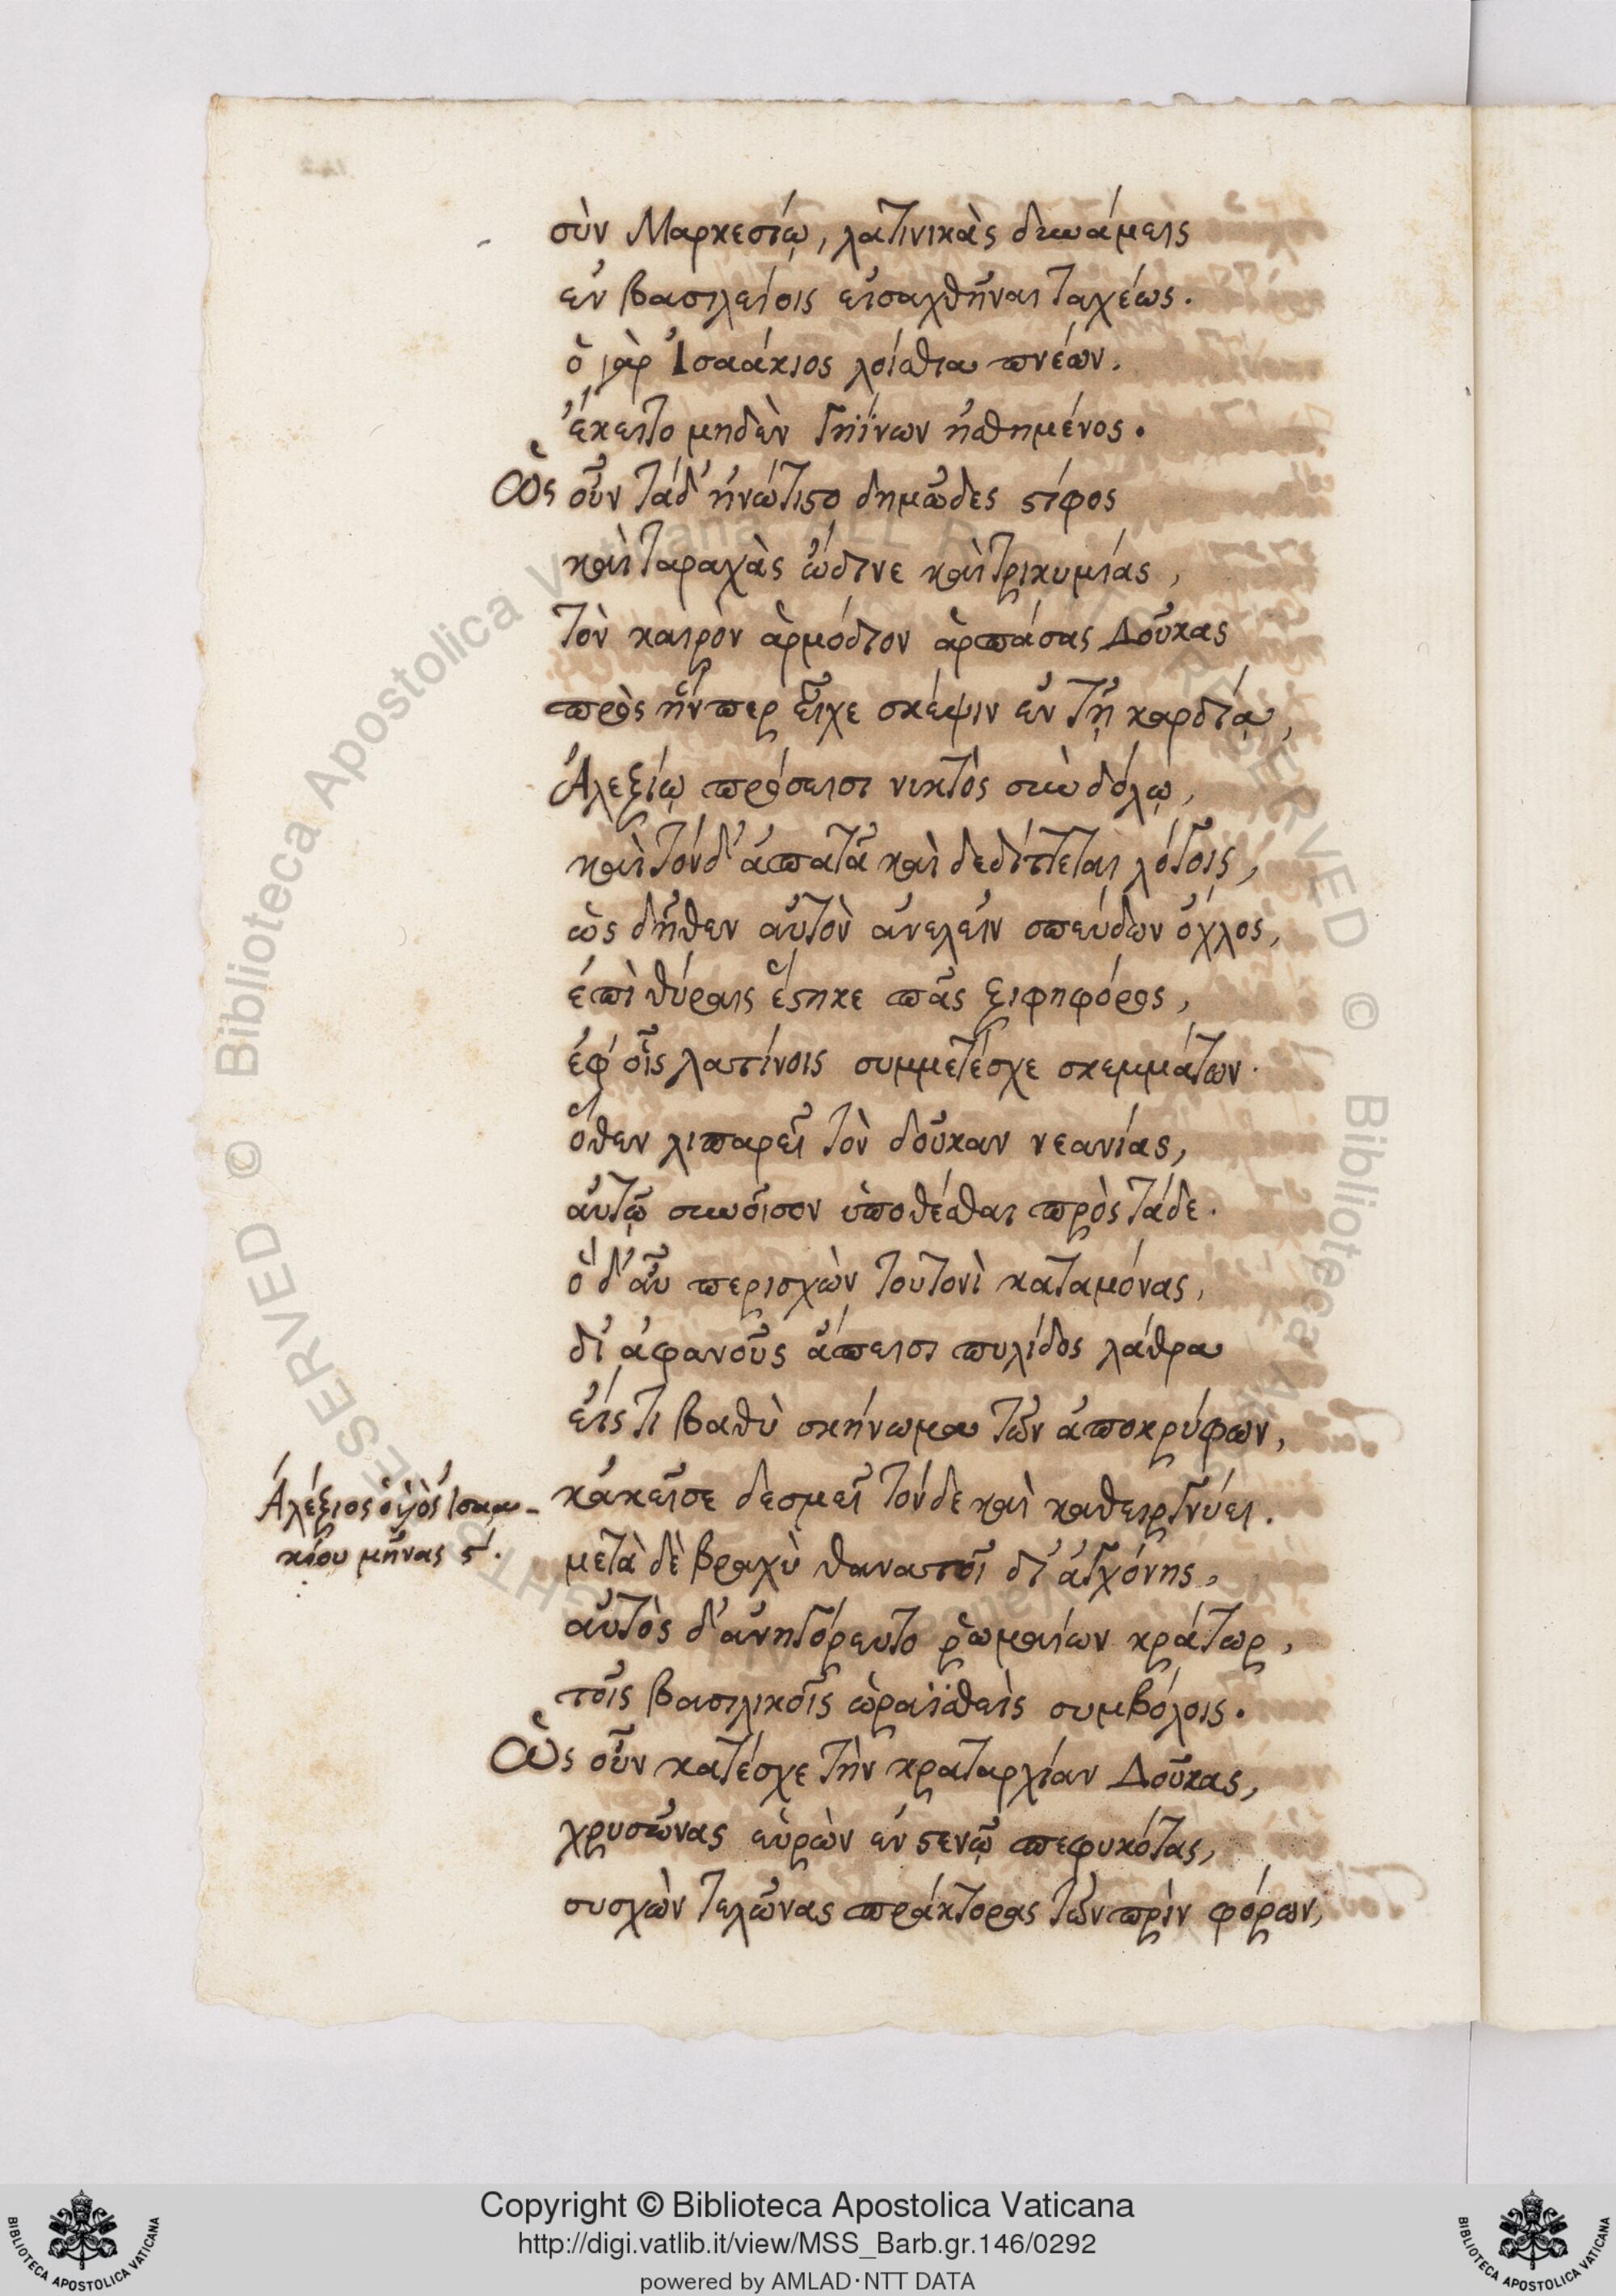 σὺν Μαρκεσίῳ, λατινικὰς δυνάμεις
ἐν βασιλείοις εἰσαχθῆναι ταχέως.
ὁ γὰρ Ἰσαάκιος λοίσθια πνέων.
ἔκειτο μηδὲν γηΐνων ᾐσθημένος.
Ὡς οὖν τάδ' ἠνώτιστο δημῶδες στίφος
καὶ ταραχὰς ὤδινε καὶ τρικυμίας,
τὸν καιρὸν ἁρμόδιον ἁρπάσας Δούκας
πρὸς ἥνπερ εἶχε σκέψιν ἐν τῇ καρδίᾳ,
Ἀλεξίῳ πρόσεισι νυκτὸς σὺν δόλῳ,
καὶ τόνδ' ἀπατᾷ καὶ δεδίττεται λόγοις,
ὡς δῆθεν αὐτὸν ἀνελεῖν σπεύδων ὄχλος,
ἐπὶ θύραις ἕστηκε πᾶς ξιφηφόρος,
ἐφ' οἷς λατίνοις συμμετέσχε σκεμμάτων.
ὅθεν λιπαρεῖ τὸν δούκαν νεανίας,
αὐτῷ συνοῖσον ὑποθέσθαι πρὸς τάδε.
ὁ δ' αὖ περισχὼν τουτονὶ καταμόνας,
δι' ἀφανοῦς ἄπεισι πυλίδος λάθρα
εἴς τι βαθὺ σκήνωμα τῶν ἀποκρύφων,
κἀκεῖσε δεσμεῖ τόνδε καὶ καθειργνύει.
Ἀλέξιος ὁ υἱὸς Ἰσαα-
κίου μῆνας ϛ΄.
μετὰ δὲ βραχὺ θανατοῖ δι' ἀγχόνης,
αὐτὸς δ' ἀνηγόρευτο ῥωμαίων κράτωρ,
τοῖς βασιλικοῖς ὡραϊσθεὶς συμβόλοις.
Ὡς οὖν κατέσχε τὴν κραταρχίαν Δούκας,
χρυσῶνας εὑρὼν ἐν στενῷ πεφυκότας,
συσχὼν τελώνας πράκτορας τῶν πρὶν φόρων,
Copyright © Biblioteca Apostolica Vaticana
http://digi.vatlib.it/view/MSS_Barb.gr.146/0292
powered by AMLAD·NTT DATA